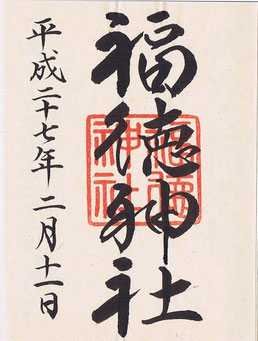 福徳神社
平成二十七年二月十一日
福徳神社